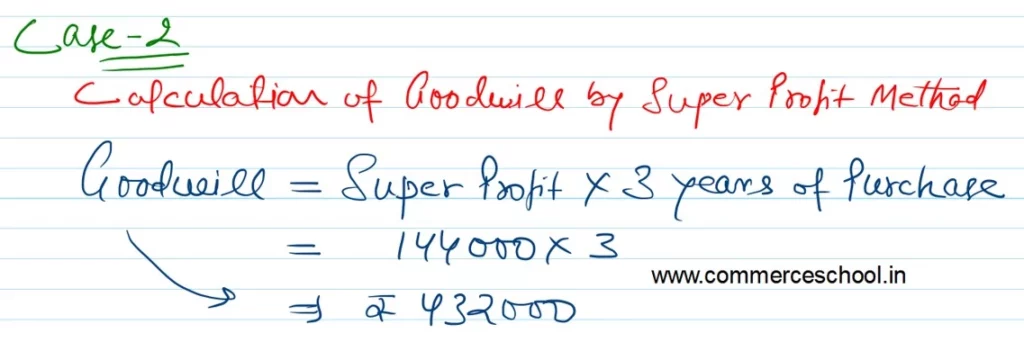 Case-2
Calculation of Goodwill by Super Profit Method
Goodwill = Super Profit × 3 years of Purchase
= 144000 × 3
www.commerceschool.in
⇒ ₹ 432000